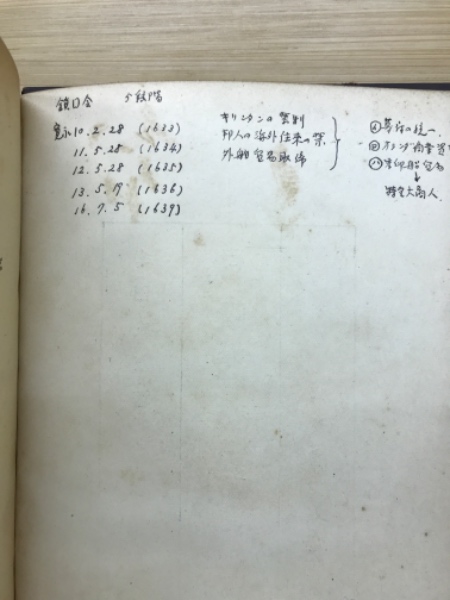 鎖国令 5段階
寛永10.2.28 (1633)
11.5.28 (1634)
12.5.28 (1635)
13.5.19 (1636)
16.7.5 (1639)
キリシタンの禁制
邦人の海外往来の禁
外舶貿易取締
㋑ の統一
㋺ オランダ商業
㋩ 朱印船貿易
↓
特定大商人